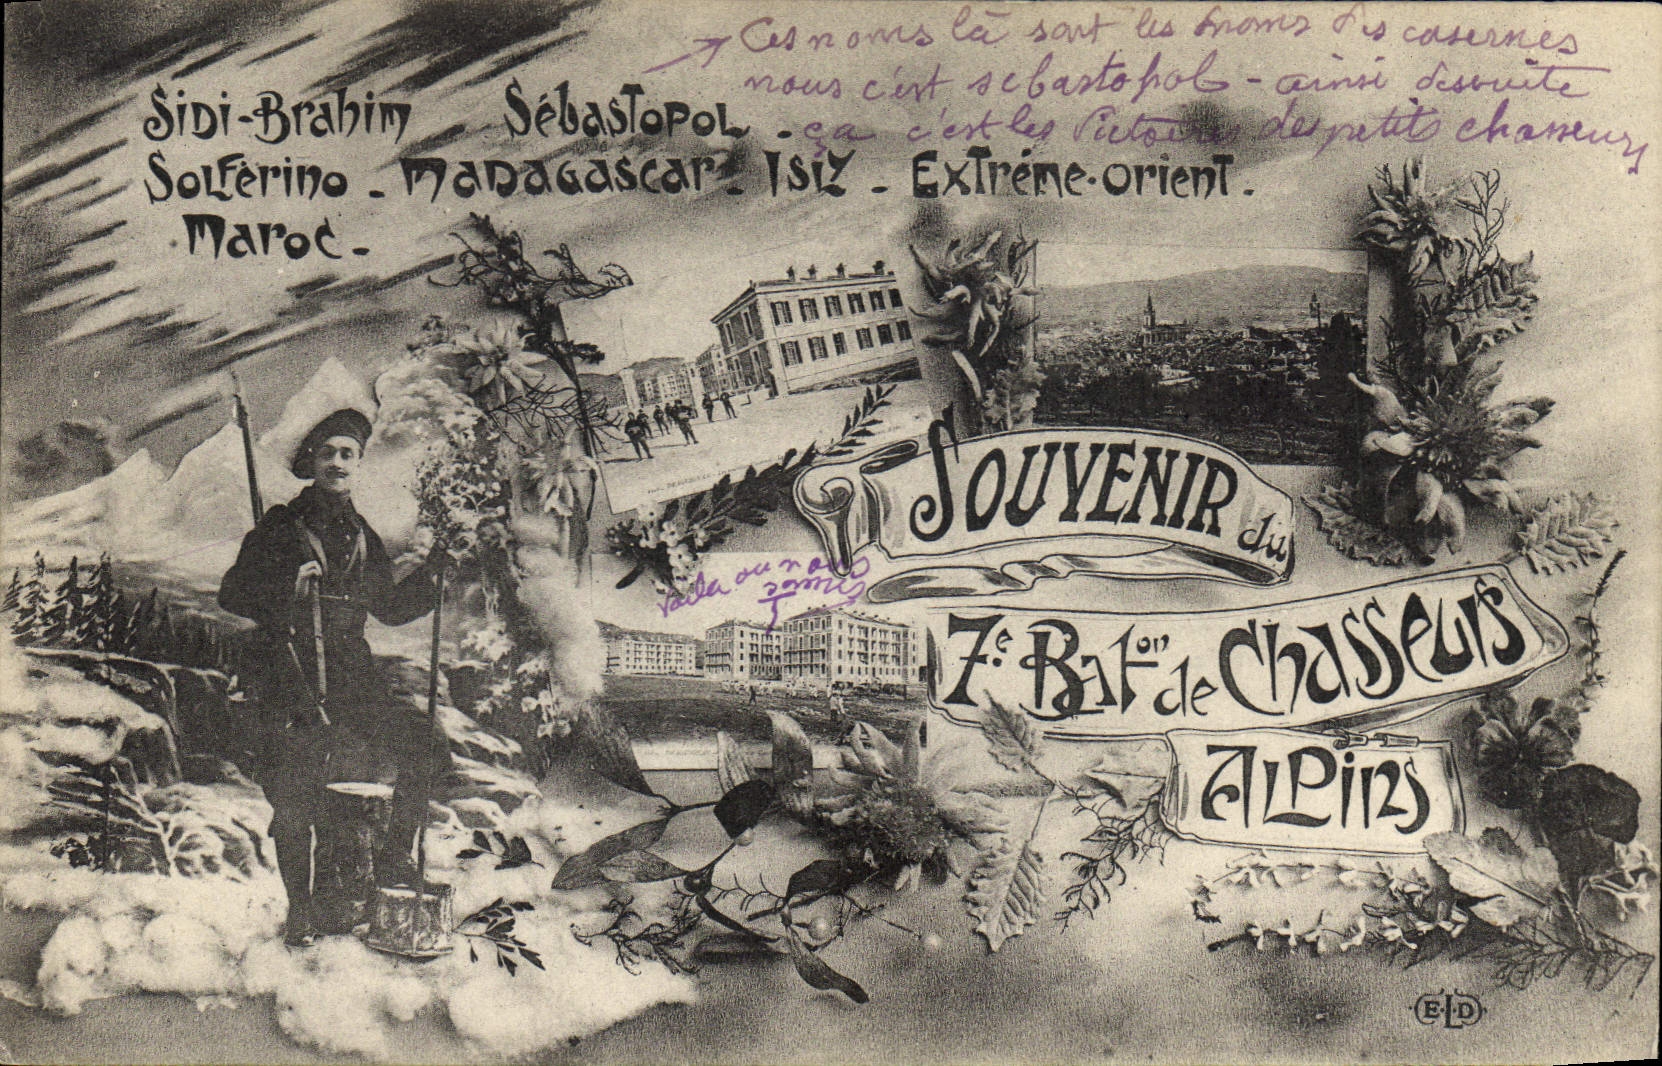 Ces noms là sont les noms des casernes
nous c'est sebastopol - ainsi desuite
ça c'est les Victoires des petits chasseurs
Sidi-Brahim - Sébastopol -
Solférino - Madagascar - Isly - Extrême-Orient -
Maroc -
Souvenir du
voila ou nous
sommes
7e Baton de Chasseurs
Alpins
E.L.D